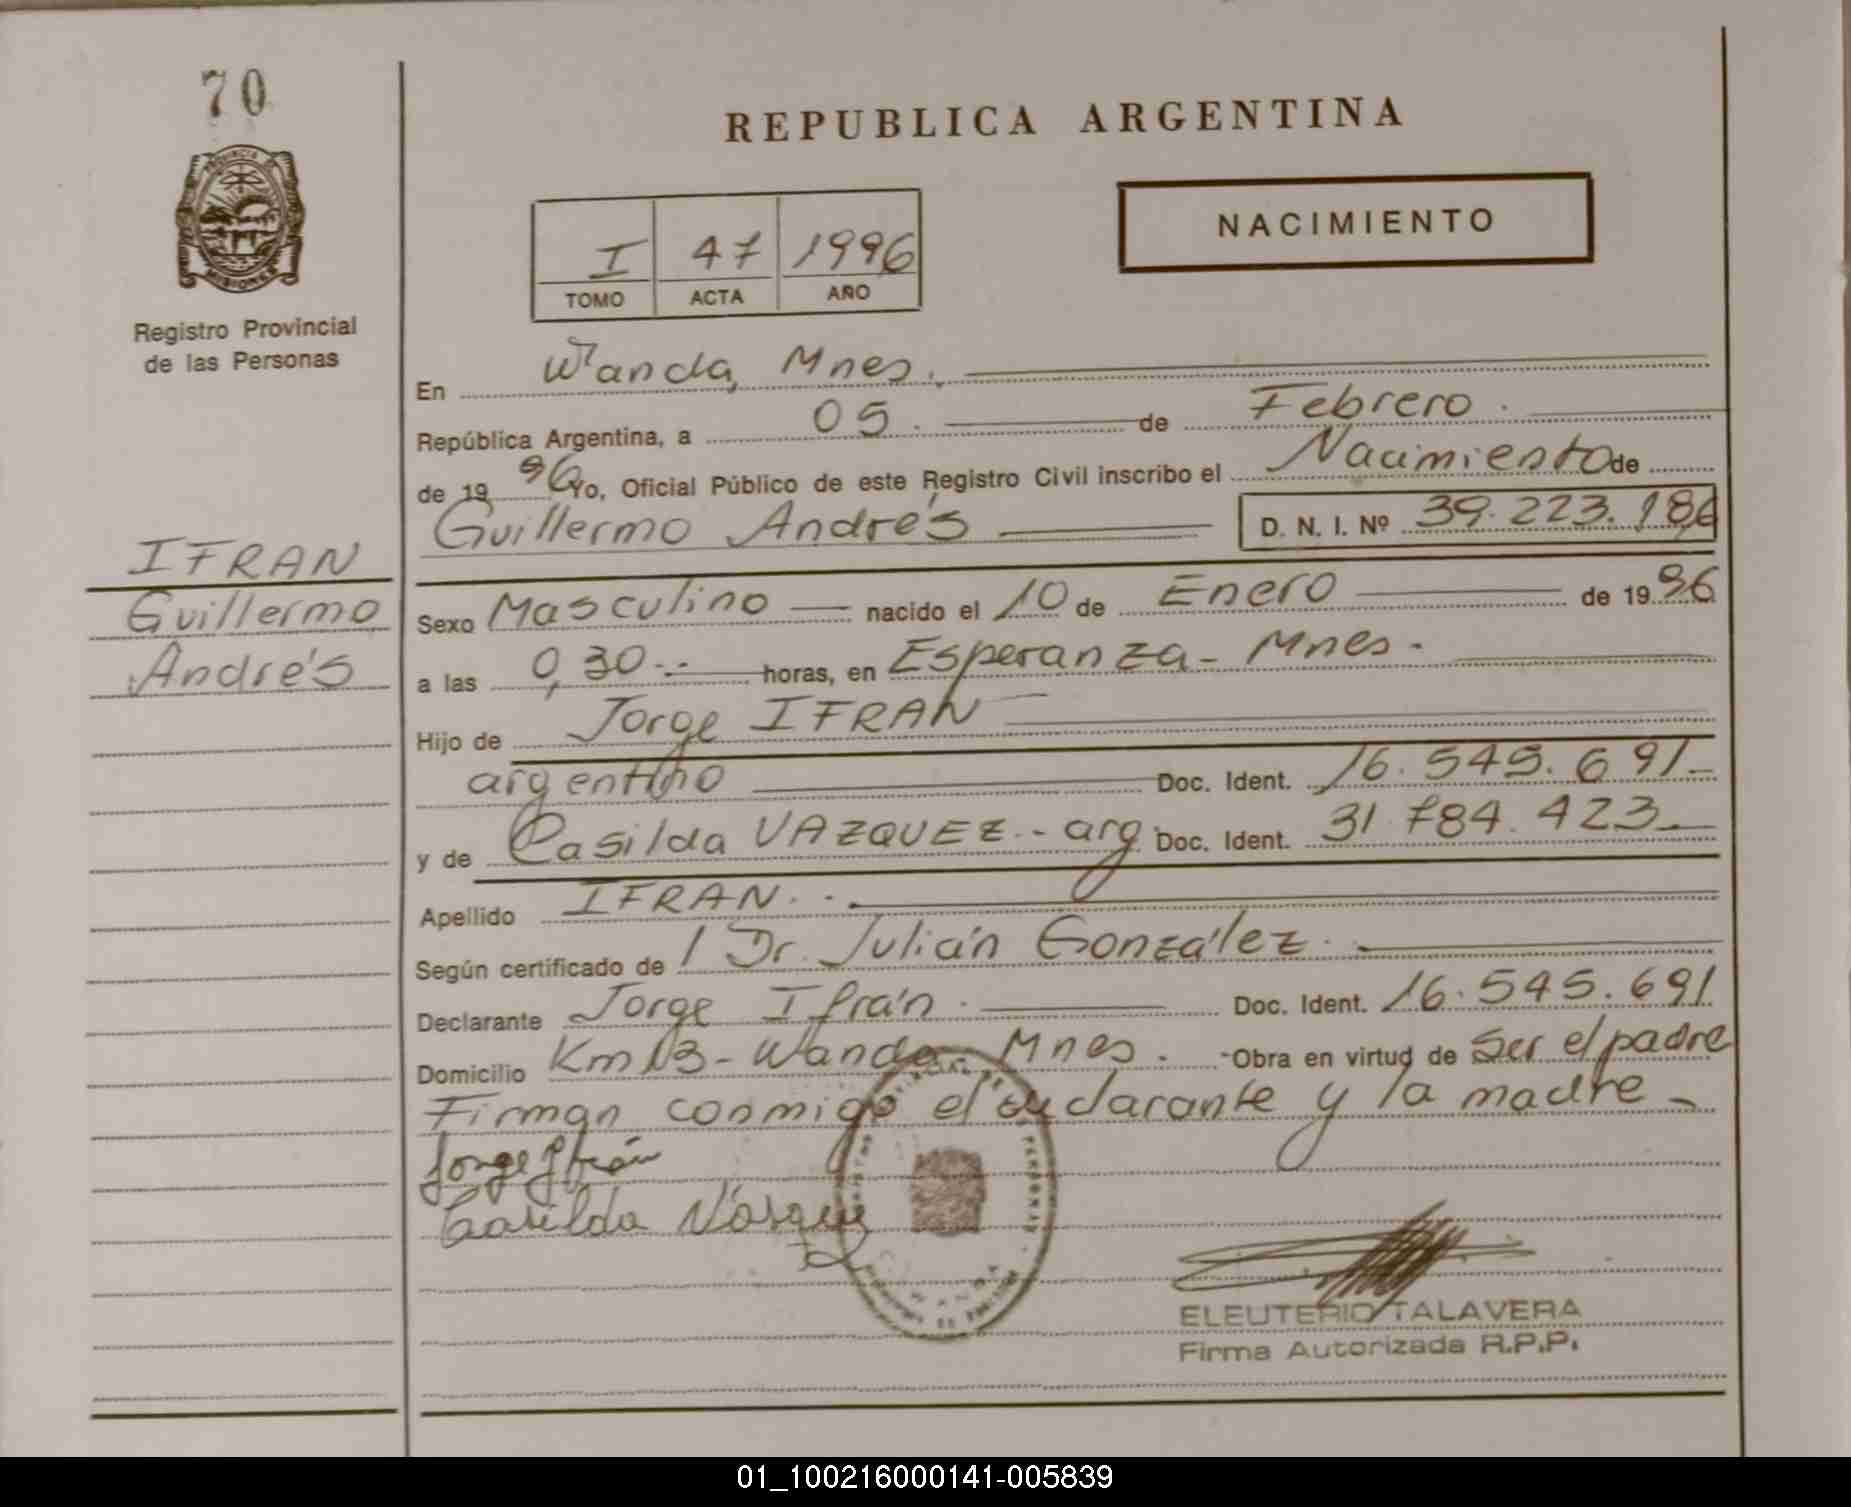 70
PROVINCIA DE
MISIONES
Registro Provincial
de las Personas
REPUBLICA ARGENTINA
NACIMIENTO
I 47 1996
TOMO ACTA AÑO
En Wanda, Mnes.
República Argentina, a 05. de Febrero.
de 19 96 Yo, Oficial Público de este Registro Civil inscribo el Nacimiento de
Guillermo Andrés D. N. I. Nº 39.223.186
IFRAN
Guillermo
Andrés
Sexo Masculino nacido el 10 de Enero de 19 96
a las 0,30.. horas, en Esperanza - Mnes.
Hijo de Jorge IFRAN
argentino Doc. Ident. 16.545.691.
y de Casilda VAZQUEZ.- arg. Doc. Ident. 31.784.423
Apellido IFRAN.
Según certificado de Dr. Julián González.
Declarante Jorge Ifrán. Doc. Ident. 16.545.691
Domicilio Km 13 - Wanda - Mnes. Obra en virtud de Ser el padre
Firman conmigo el declarante y la madre
Jorge Ifrán
Casilda
ELEUTERIO TALAVERA
Firma Autorizada R.P.P.
01_100216000141-005839